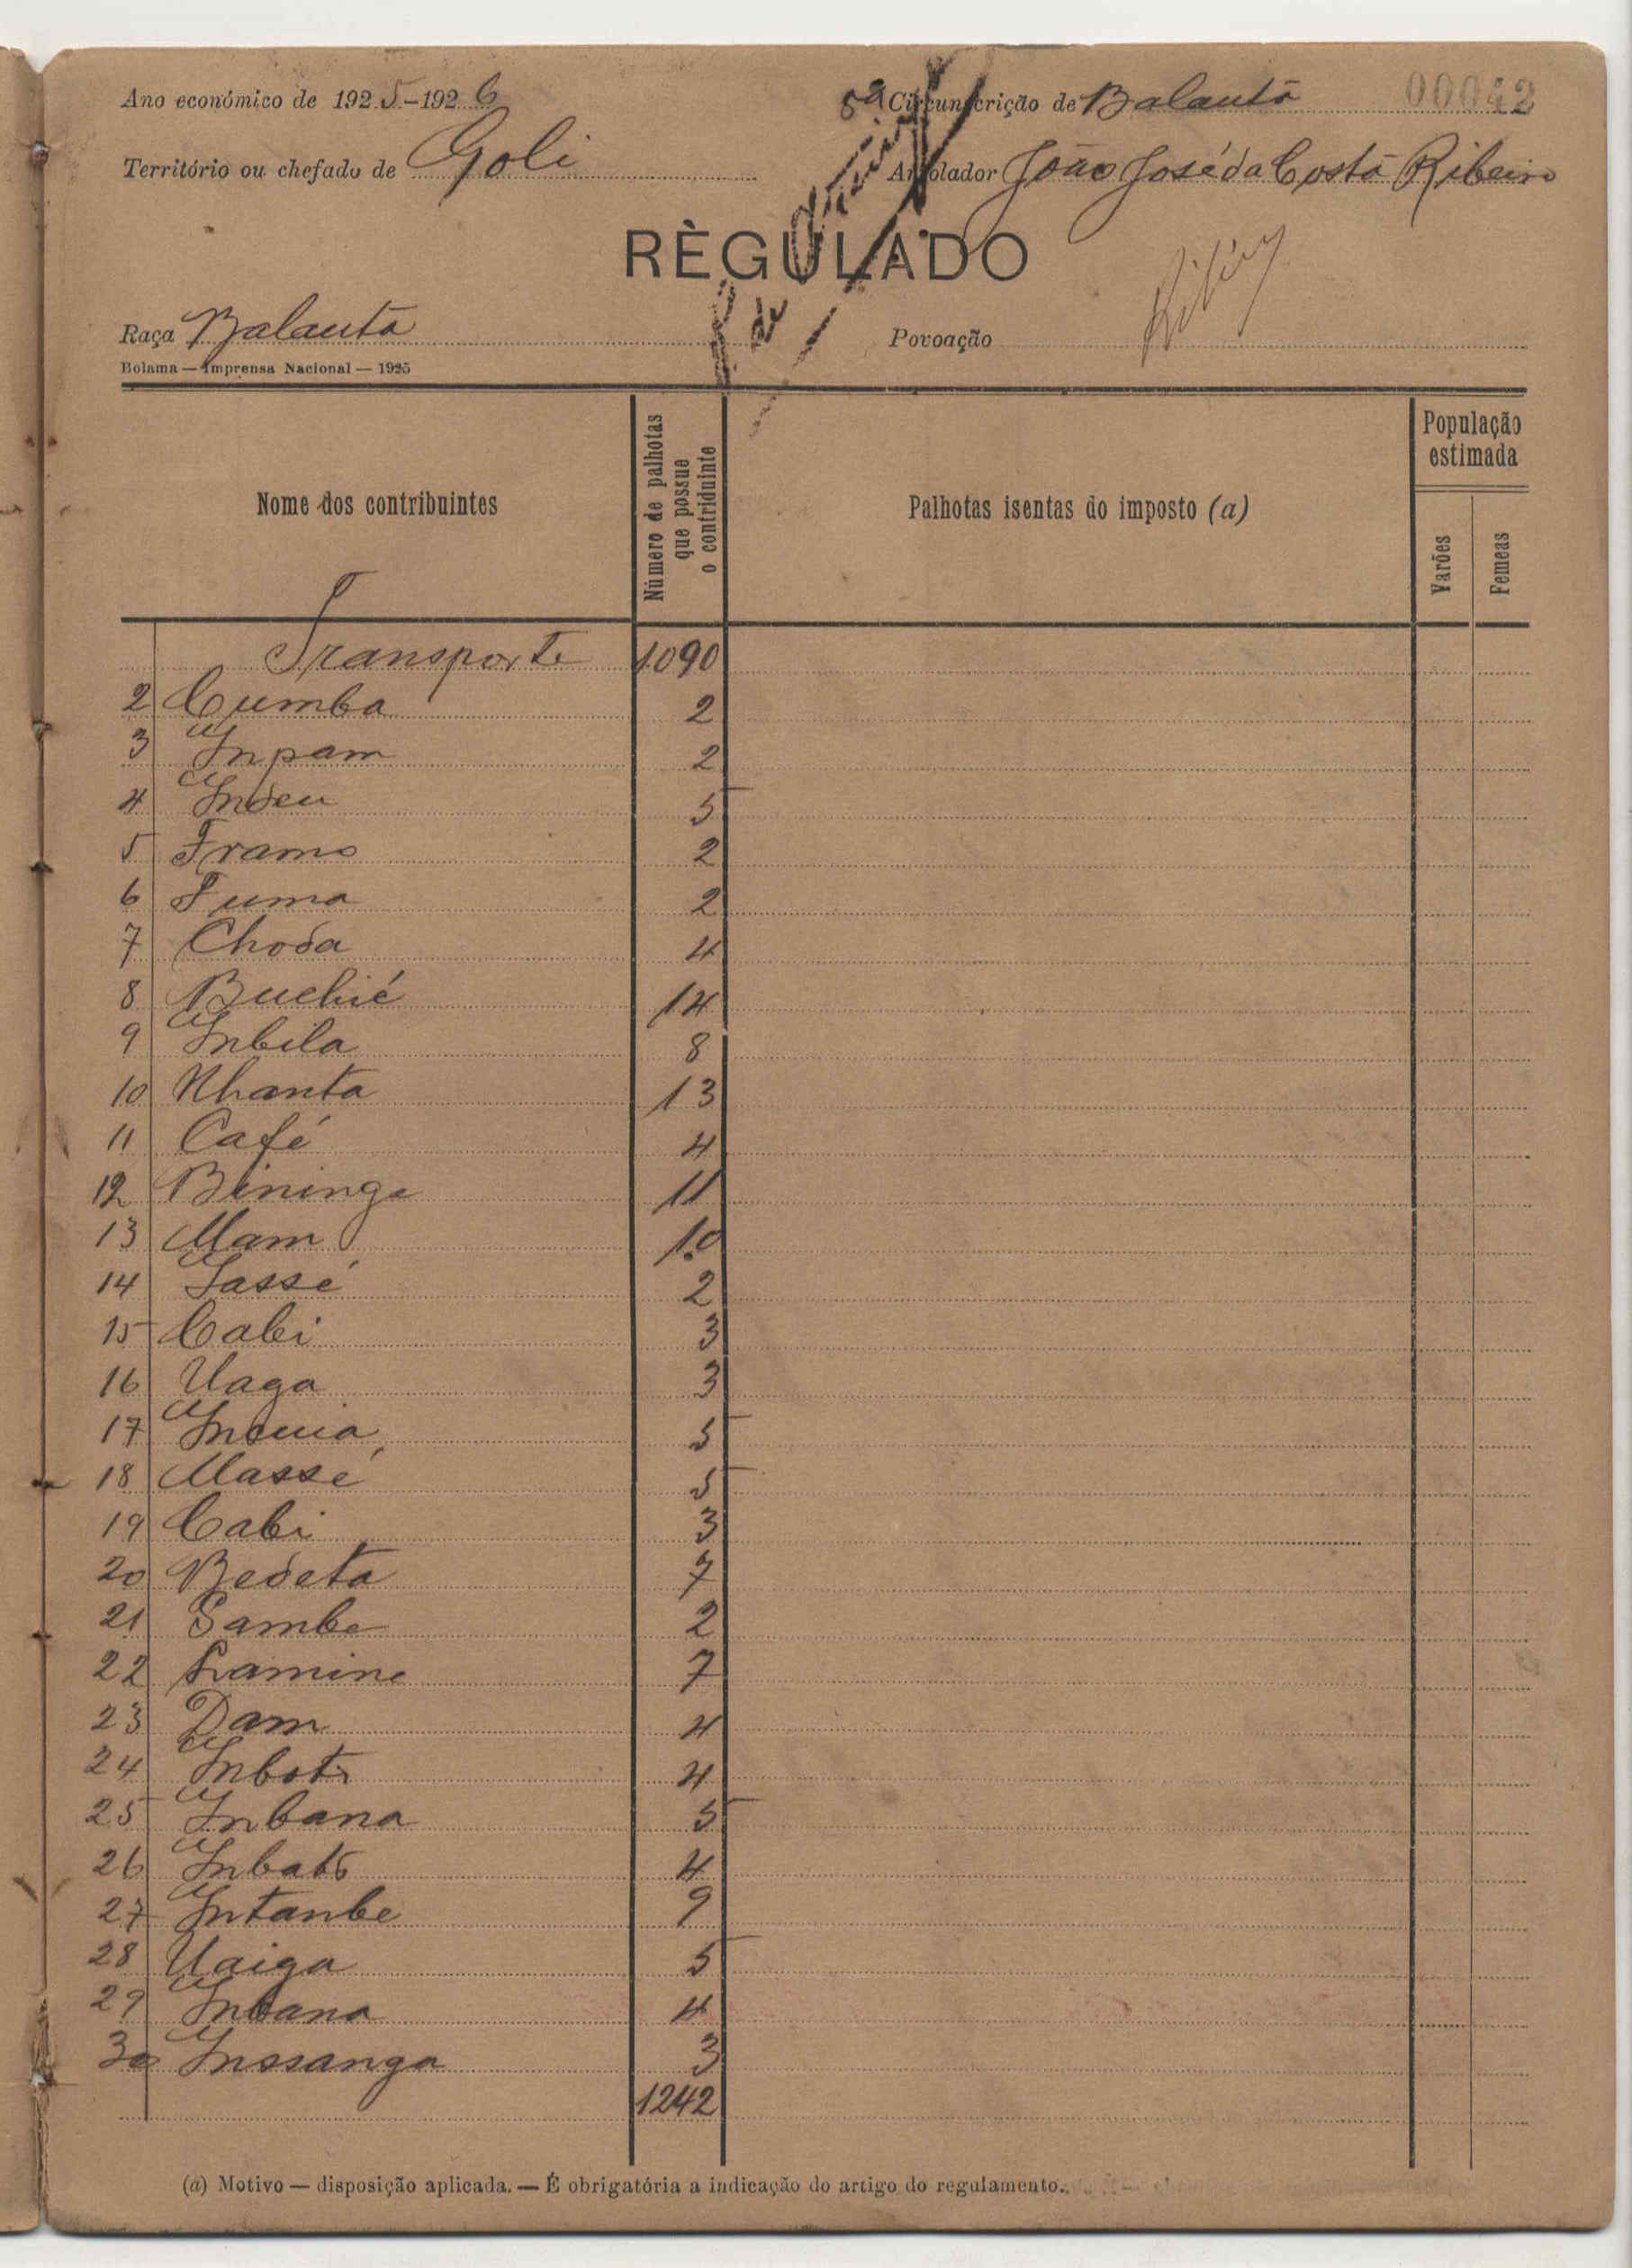 Ano económico de 1925-1926
5ª Circunscrição de Balanta 00042
Território ou chefado de Goli
Arrolador João José da Costa Ribeiro
RÈGULADO
Raça Balanta
Povoação
Bolama — Imprensa Nacional — 1925
Nome dos contribuintes
Número de palhotas que possue o contriduinte
Palhotas isentas do imposto (a)
População estimada
Varões
Femeas
Transporte 1090
2 Cumba 2
3 Inpam 2
4 Indeu 5
5 Framo 2
6 Tuma 2
7 Choda 4
8 Buchié 14
9 Inbila 8
10 Nhanta 13
11 Café 4
12 Bininga 11
13 Mam 10
14 Iassé 2
15 Cabi 3
16 Uaga 3
17 5
18 Massé 5
19 Cabi 3
20 Bedeta 7
21 Sambe 2
22 Lamine 7
23 Dam 4
24 Inbote 4
25 Inbana 5
26 Inbato 4
27 Intanbe 9
28 Uaiga 5
29 Inbana 4
30 Inssanga 3
1242
(a) Motivo — disposição aplicada. — É obrigatória a indicação do artigo do regulamento.